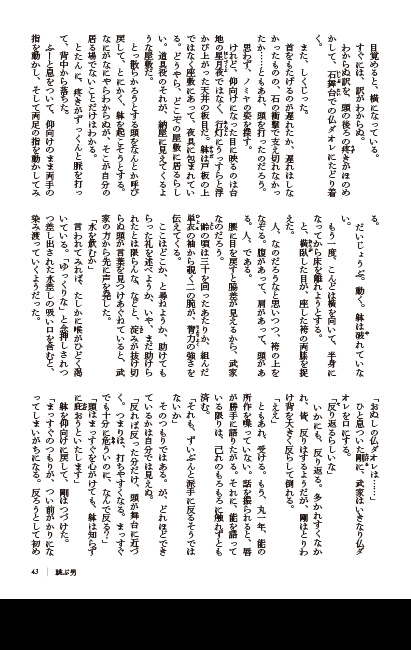 目覚めると、横になっている。
すぐには、訳がわからぬ。
わからぬ訳を、頭の後ろの疼きがほのめ
かして、石舞台での仏ダオレにたどり着
く。
また、しくじった。
首をもたげるのが遅れたか、遅れはしな
かったものの、石の衝撃で支え切れなかっ
たか……ともあれ、頭を打ったのだろう。
思わず、ノミヤの姿を探す。
けれど、仰向けになった目に映るのは台
地の星月夜ではなく、行灯にうっすらと浮
かび上がった天井の板目だ。躰は戸板の上
ではなく座敷にあって、夜具に包まれてい
る。どうやら、どこぞの屋敷に居るらし
い。道具役のそれが、納屋に見えてくるよ
うな屋敷だ。
とっ散らかろうとする頭をなんとか呼び
戻して、とにかく、躰を起こそうとする。
なにがなにやらわからぬが、そこが自分の
居る場でないことだけはわかる。
とたんに、疼きがずっくんと脈を打っ
て、背中から落ちた。
ふーと息をついて、仰向けのまま両手の
指を動かし、そして両足の指を動かしてみ
る。
だいじょうぶ。動く。躰は破れていな
い。
もう一度、こんどは横を向いて、半身に
なってから床を離れようとする。
と、横臥した目が、座した袴の両膝を捉
えた。
人、なのだろうなと思いつつ、袴の上を
なぞる。腹があって、肩があって、頭があ
る。人、である。
腰に目を戻すと脇差が見えるから、武家
なのだろう。
齢の頃は三十を回ったあたりか、組んだ
単衣の袖から覗く二の腕が、膂力の強さを
伝えてくる。
ここはどこか、と尋ねようか、助けても
らった礼を述べようか、いや、まだ助けら
れたとは限らんな、などと、淀みが抜け切
らぬ頭が言葉を見つけあぐねていると、武
家の方から先に声を発した。
「水を飲むか」
言われてみれば、たしかに喉がひどく渇
いている。「ゆっくりな」と念押しされつ
つ差し出された水差しの吸い口を含むと、
染み渡っていくようだった。
「おぬしの仏ダオレは……」
ひと息ついた剛に、武家はいきなり仏ダ
オレを口にする。
「反り返るらしいな」
いかにも、反り返る。多かれすくなか
れ、皆、反りはするようだが、剛はとりわ
け背を大きく反らして倒れる。
「ええ」
ともあれ、受ける。もう、丸一年、能の
所作を喋っていない。話を振られると、唇
が勝手に語りたがる。それに、能を語って
いる限りは、己れのもろもろに触れずとも
済む。
「それも、ずいぶんと派手に反るそうでは
ないか」
そのつもりではある。が、どれほどでき
ているかは自分では見えぬ。
「反れば反った分だけ、頭が舞台に近づ
く。つまりは、打ちやすくなる。まっすぐ
でも十分に危ういのに、なんで反る？」
「頭はまっすぐを心がけても、躰は知らず
に庇おうといたします」
躰を仰向けに戻して、剛はつづけた。
「まっすぐのつもりが、つい前がかりにな
ってしまいがちになる。反ろうとして初め
43 跳ぶ男